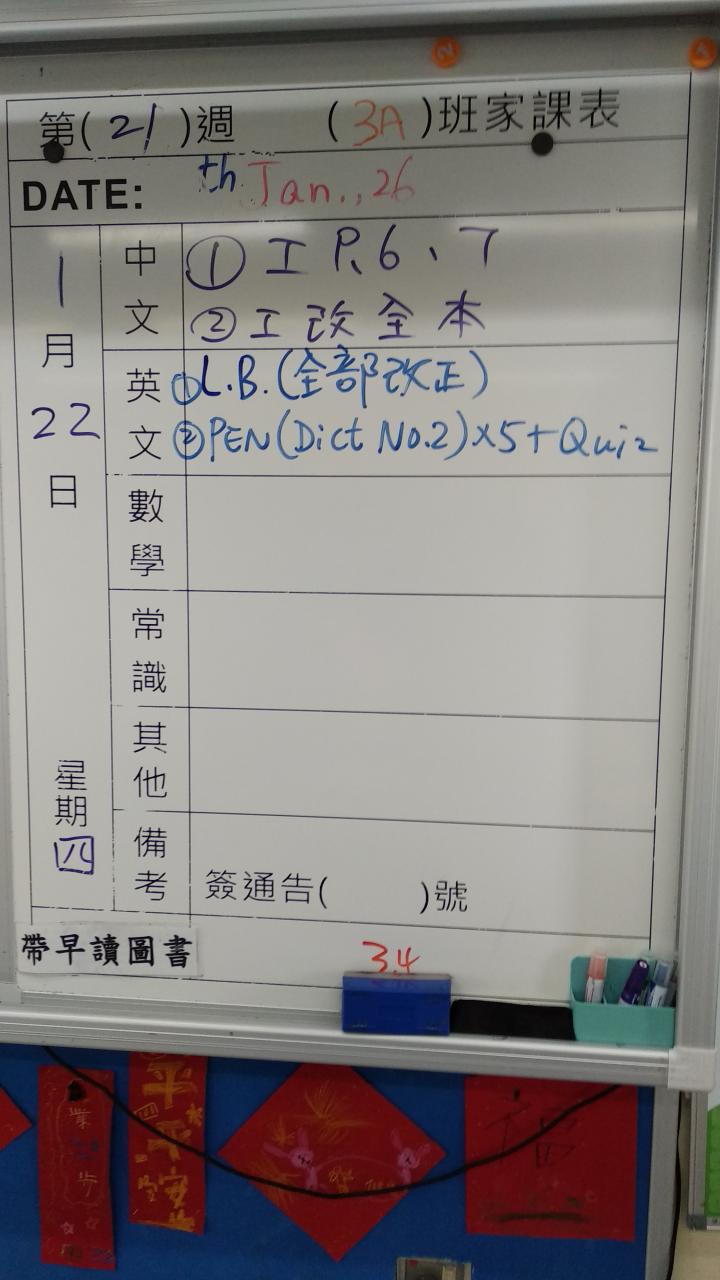 第(21)週 (3A)班家課表
DATE: th Jan., 26
1月22日
星期四
中文
①工 P.6、7
②工改全本
英文
①L.B.(全部改正)
②PEN(Dict No.2)×5+Quiz
數學
常識
其他
備考
簽通告( )號
帶早讀圖書
3.4
福